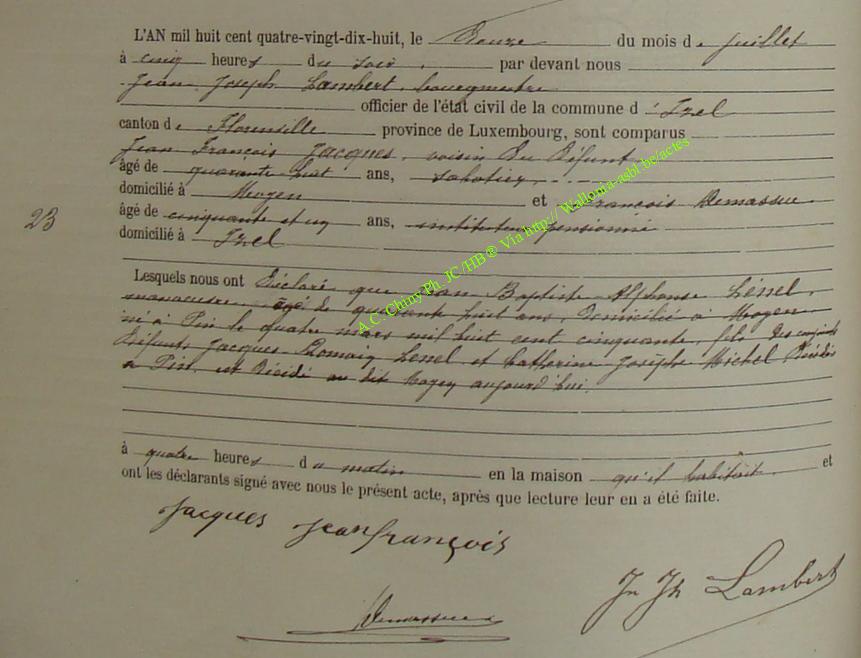 L'AN mil huit cent quatre-vingt-dix-huit, le Douze du mois de juillet
à cinq heures du soir, par devant nous
Jean Joseph Lambert, bourgmestre
officier de l'état civil de la commune d'Izel
canton de Florenville province de Luxembourg, sont comparus
Jean François Jacques, voisin du Défunt
âgé de quarante huit ans, sabotier,
domicilié à Moyen et François Demasse
âgé de cinquante et un ans, instituteur pensionné
23
domicilié à Izel
Lesquels nous ont Déclaré que Jean Baptiste Alphonse Lénel,
manoeuvre, âgé de quarante huit ans, Domicilié à Moyen
né à Pin le quatre mars mil huit cent cinquante, fils des conjoints
Défunts Jacques Lenel et Catherine Josèphe Michel Décédés
à Pin, est Décédé au dit Moyen aujourd'hui.
à quatre heures du matin en la maison qu'il habitait. et
ont les déclarants signé avec nous le présent acte, après que lecture leur en a été faite.
Jacques Jean françois
Jn Jh Lambert
A.C. Chiny Ph. JC /HB® Via http:// Wallonia-asbl.be/actes